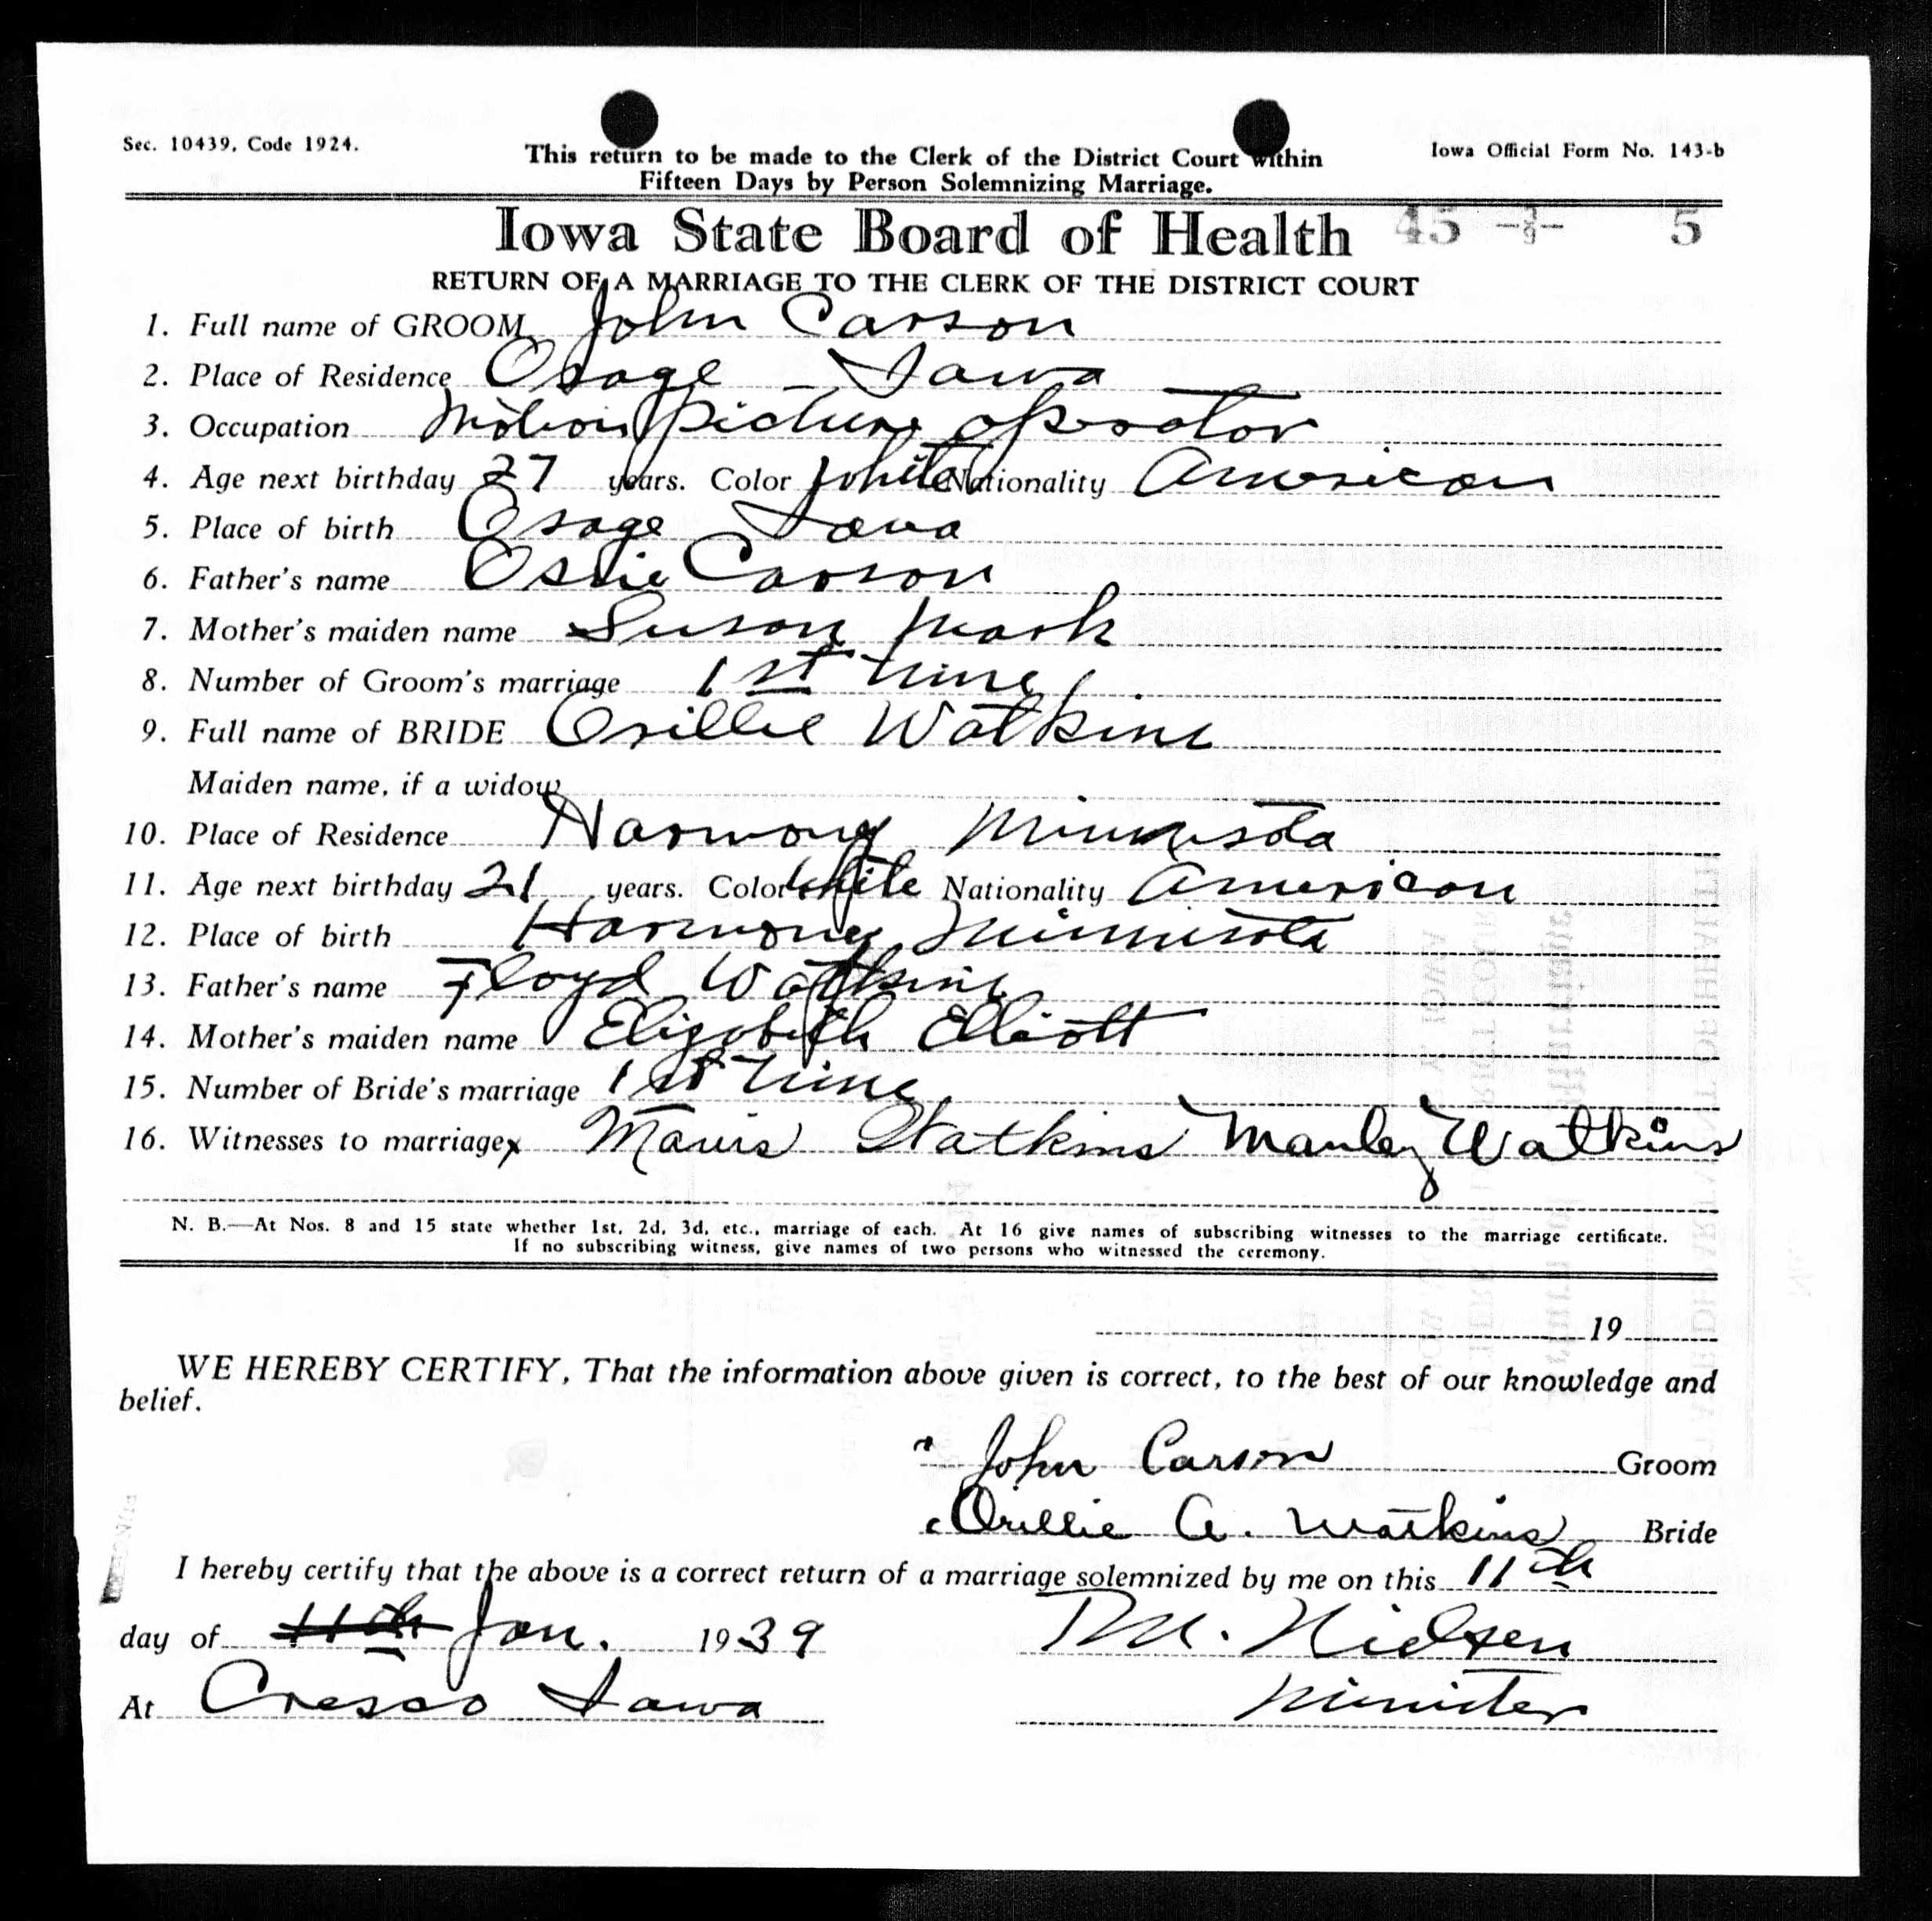 Sec. 10439, Code 1924.
This return to be made to the Clerk of the District Court within
Iowa Official Form No. 143-b
Fifteen Days by Person Solemnizing Marriage.
Iowa State Board of Health 45 5
RETURN OF A MARRIAGE TO THE CLERK OF THE DISTRICT COURT
1. Full name of GROOM John Carson
2. Place of Residence Osage - Iowa
3. Occupation Motion picture operator
4. Age next birthday 27 years. Color white Nationality American
5. Place of birth Osage Iowa
6. Father's name Ossie Carson
7. Mother's maiden name Susan Mark
8. Number of Groom's marriage 1st time
9. Full name of BRIDE Orillie Watkins
Maiden name, if a widow
10. Place of Residence Harmony Minnesota
11. Age next birthday 21 years. Color white Nationality American
12. Place of birth Harmony Minnesota
13. Father's name Floyd Watkins
14. Mother's maiden name Elizabeth Elliott
15. Number of Bride's marriage 1st time
16. Witnesses to marriage x Mavis Watkins Manley Watkins
N. B.—At Nos. 8 and 15 state whether 1st, 2d, 3d, etc., marriage of each. At 16 give names of subscribing witnesses to the marriage certificate.
If no subscribing witness, give names of two persons who witnessed the ceremony.
19
WE HEREBY CERTIFY, That the information above given is correct, to the best of our knowledge and
belief.
John Carson Groom
Orillie A. Watkins Bride
I hereby certify that the above is a correct return of a marriage solemnized by me on this 11th
day of 11th Jan. 1939 Nielsen
At Cresco Iowa Minister